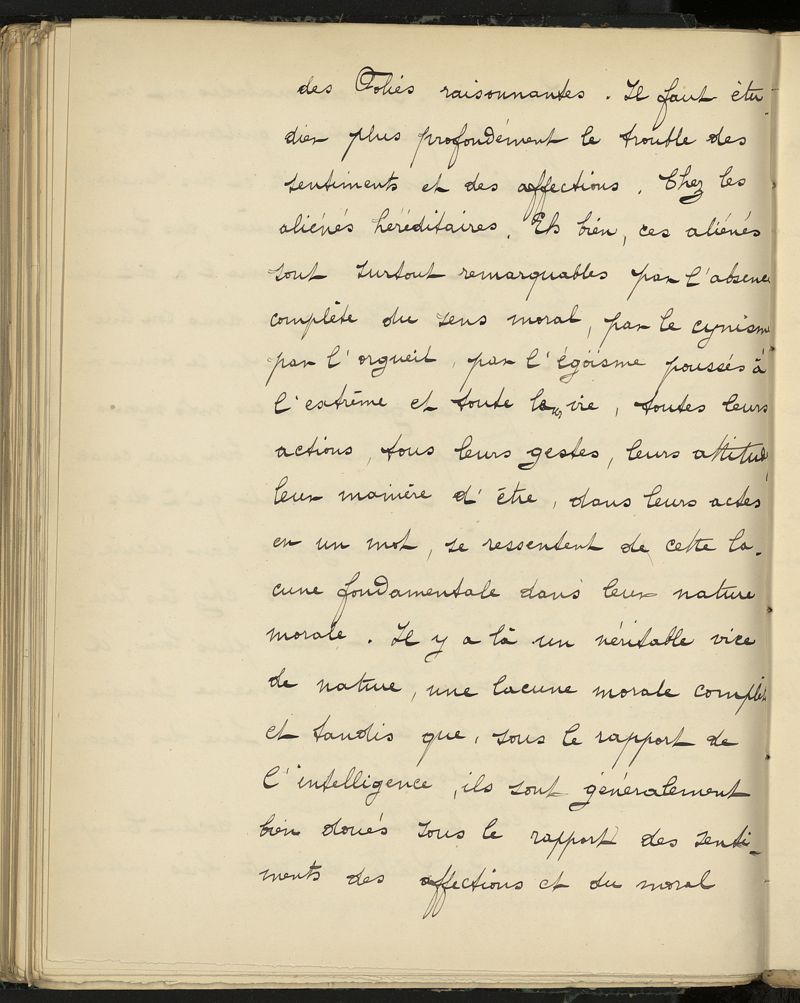 des Folies raisonnantes. Il faut étu-
dier plus profondément le trouble des
sentiments et des affections. Chez les
aliénés héréditaires. Eh bien, ces aliénés
sont surtout remarquables par l'absence
complète du sens moral, par le cynisme
par l'orgueil, par l'égoïsme poussés à
l'extrême et toute la vie, toutes leurs
actions, tous leurs gestes, leurs attitudes,
leur manière d'être, dans leurs actes
en un mot, se ressentent de cette la-
cune fondamentale dans leur nature
morale. Il y a là un véritable vice
de nature, une lacune morale complète
et tandis que, sous le rapport de
l'intelligence, ils sont généralement
bien doués sous le rapport des senti-
ments des affections et du moral